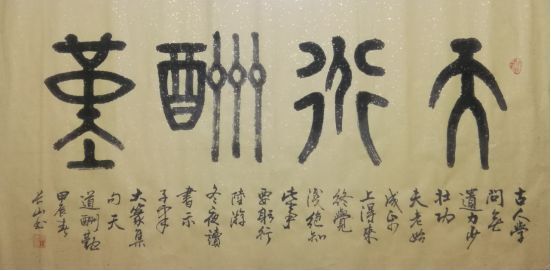 天道酬堇
古人學
問無
遺力少
壯功
夫老始
成紙
上得來
終覺
淺絕知
此事
要躬行
陸游
冬夜讀
書示
子聿
大篆集
句天
道酬勤
甲辰春
長山書